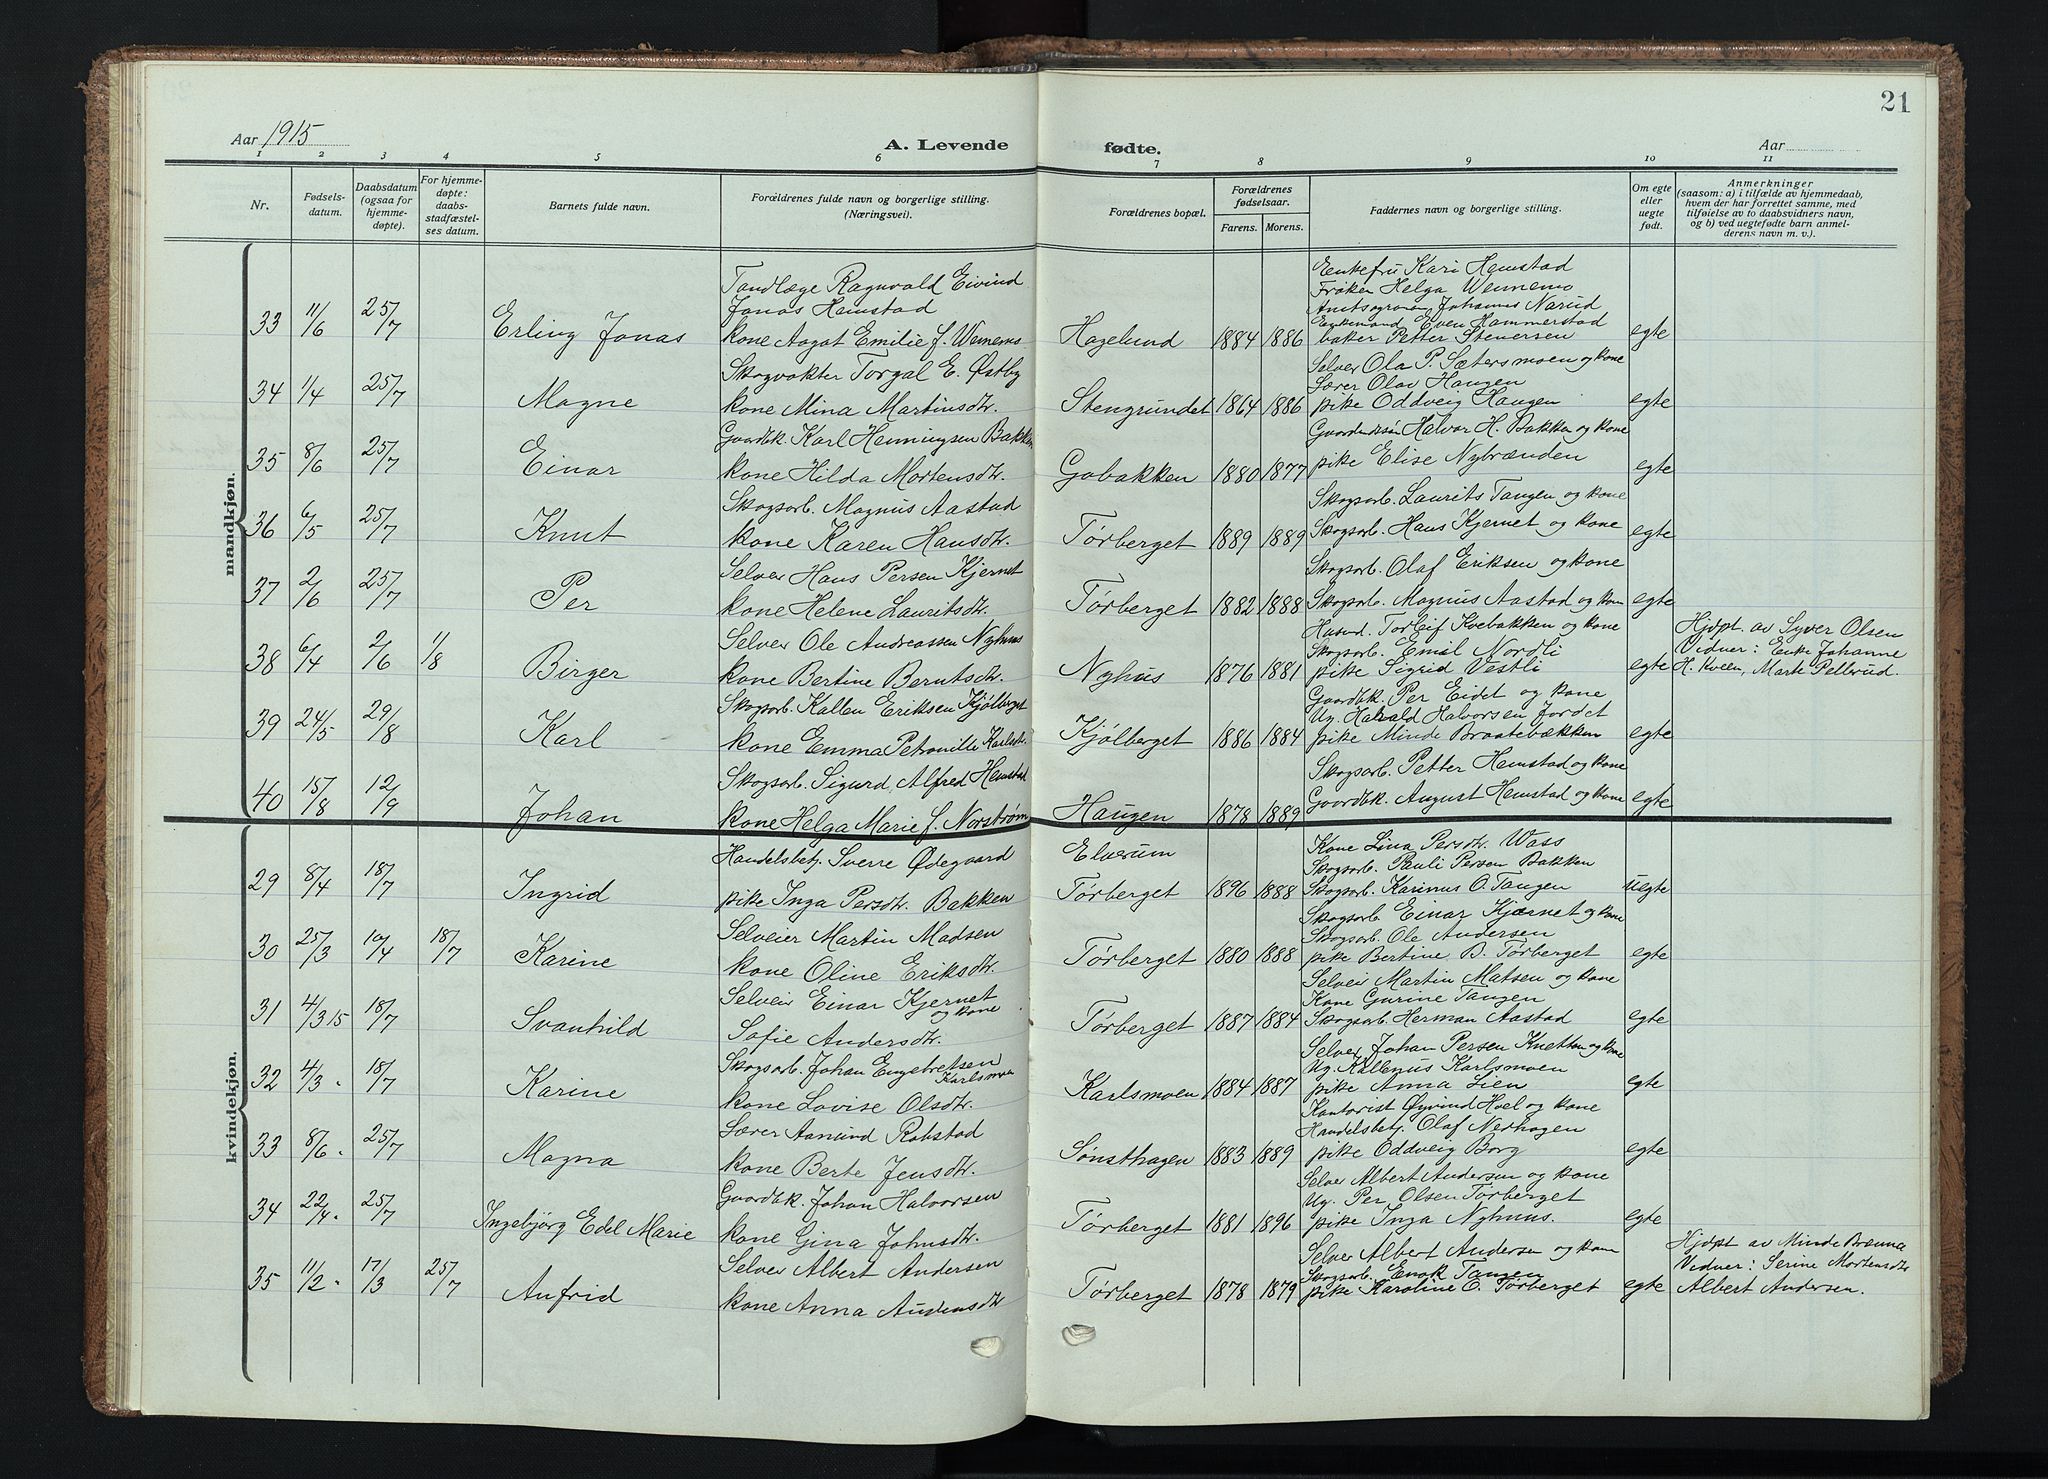 21
Aar 1915
A. Levende fødte.
Aar
1 2 3 4 5 6 7 8 9 10 11
Nr.
Fødsels-
datum.
Daabsdatum
(ogsaa for
hjemme-
døpte).
For hjemme-
døpte:
daabs-
stadfæstel-
ses datum.
Barnets fulde navn.
Forældrenes fulde navn og borgerlige stilling.
(Næringsvei).
Forældrenes bopæl.
Forældrenes
fødselsaar.
Farens. Morens.
Faddernes navn og borgerlige stilling.
Om egte
eller
uegte
født.
Anmerkninger
(saasom: a) i tilfælde av hjemmedaab,
hvem der har forrettet samme, med
tilføielse av to daabsvidners navn,
og b) ved uegtefødte barn anmel-
derens navn m. v.).
mandkjøn.
33 11/6 25/7 Erling Jonas
Tandlæge Ragnvald Eivind
Jonas Hemstad
kone Aagat Emilie f. Wennemo
Hagelund 1884 1886
Enkefru Kari Hemstad
Frøken Helga Wennemo
Johannes Narud
Even Hammerstad
baker Petter Stenersen
egte
34 11/4 25/7 Magne
Skogvokter Torgal E. Østby
kone Mina Martinsdtr.
Stengrundet 1864 1886
Selveier Ola P. Sætersmoen og kone
Lærer Olav Haugen
pike Oddveig Haugen
egte
35 8/6 25/7 Einar
Gaardbk. Karl Henningsen Bakken
kone Hilda Mortensdtr.
Gobakken 1880 1877
Halvor H. Bakken og kone
pike Elise Nybrænden
egte
36 6/5 25/7 Knut
Skogsarb. Magnus Aastad
kone Karen Hansdtr.
Tørberget 1889 1889
Skogsarb. Laurits Tangen og kone
Skogsarb. Hans Kjernet og kone
egte
37 2/6 25/7 Per
Selveier Hans Persen Kjernet
kone Helene Lauritsdtr.
Tørberget 1882 1888
Skogsarb. Olaf Eriksen og kone
Skogsarb. Magnus Aastad og kone
egte
38 6/4 2/6 1/8 Birger
Selveier Ole Andreassen Nyhuus
kone Bertine Berntsdtr.
Nyhus 1876 1881
Husmd. Torleif Kvebakken og kone
Skogsarb. Emil Nordli
pike Sigrid Vestli
egte
Hjdpt. av Syver Olsen
Vidner: Enke Johanne
H. Kveen, Marte Pellerud.
39 24/5 29/8 Karl
Skogsarb. Kallen Eriksen Kjølberget
kone Emma Petronille Karlsdtr.
Kjølberget 1886 1884
Gaardbk. Per Eidet og kone
Ug. Harald Halvorsen Jordet
pike Minde Braatebækken
egte
40 15/8 12/9 Johan
Skogsarb. Sigurd Alfred Hemstad
kone Helga Marie f. Norstrøm
Haugen 1878 1889
Skogsarb. Petter Hemstad og kone
Gaardbk. August Hemstad og kone
egte
kvindekjøn.
29 8/4 18/7 Ingrid
Handelsbetj. Sverre Ødegaard
pike Inga Persdtr. Bakken
Elverum
Tørberget 1896 1888
Kone Lina Persdtr. Wass
Skogsarb. Pauli Persen Bakken
Skogsarb. Karinus O. Tangen
uegte
30 25/3 10/4 18/7 Karine
Selveier Martin Madsen
kone Oline Eriksdtr.
Tørberget 1880 1888
Skogsarb. Einar Kjærnet og kone
Skogsarb. Ole Andersen
pike Bertine B. Tørberget
egte
31 4/3 15 18/7 Svanhild
Selveier Einar Kjernet
og kone
Sofie Andersdtr.
Tørberget 1887 1884
Selveier Martin Matsen og kone
Kone Gurine Tangen
Skogsarb. Herman Aastad
egte
32 4/3 " 18/7 Karine
Skogsarb. Johan Engebretsen
Karlsmoen
kone Lovise Olsdtr.
Karlsmoen 1884 1887
Selveier Johan Persen Knetten og kone
Ug. Kallenus Karlsmoen
pike Anna Lien
egte
33 8/6 " 25/7 Magna
Lærer Aamund Robstad
kone Berte Jensdtr.
Sønsthagen 1883 1889
Kantorist Øyvind Hoel og kone
Handelsbetj. Olaf Nerhagen
pike Oddveig Borg
egte
34 22/4 " 25/7 Ingebjörg Edel Marie
Gaardbk. Johan Halvorsen
kone Gina Johnsdtr.
Tørberget 1881 1896
Selveier Albert Andersen og kone
Ug. Per Olsen Tørberget
pike Inga Nyhuus.
egte
35 11/2 " 17/3 25/7 Anfrid
Selveier Albert Andersen
kone Anna Audensdtr
Tørberget 1878 1879
Selveier Albert Andersen og kone
Skogsarb. Enok Tangen
pike Karoline O. Tørberget
egte
Hjdpt av Minde Brænna
Vidner: Serine Mortensdtr
Albert Andersen.